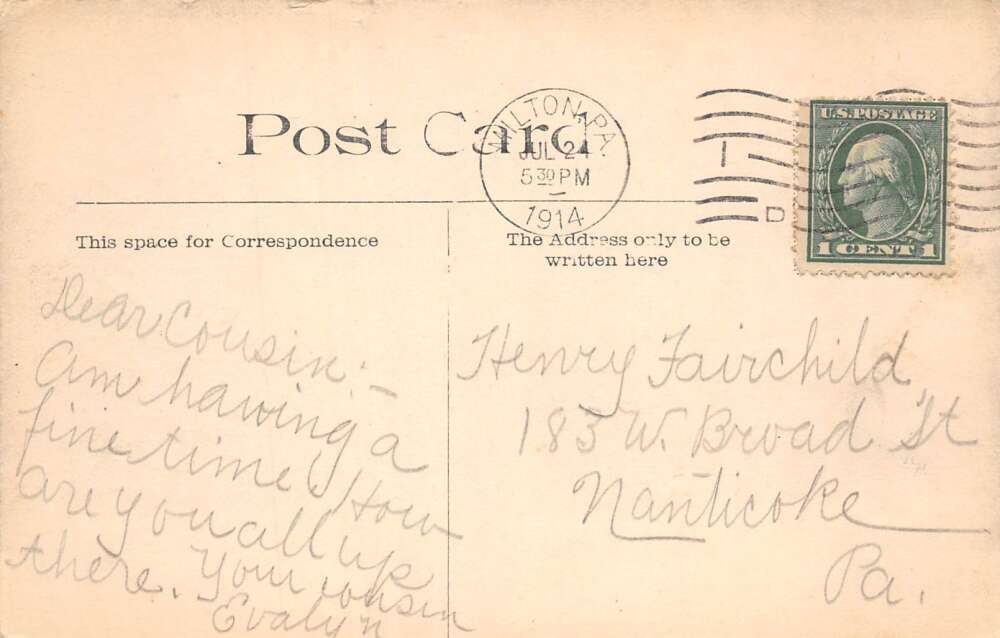 Post Card
MILTON, PA.
JUL 24
5 30 PM
1914
D
U.S. POSTAGE
1 CENT 1
This space for Correspondence
The Address only to be
written here
Dear Cousin:—
Am having a
fine time. How
are you all up
there. Your cousin
Evalyn
Henry Fairchild
183 W. Broad St
Nanticoke
Pa.